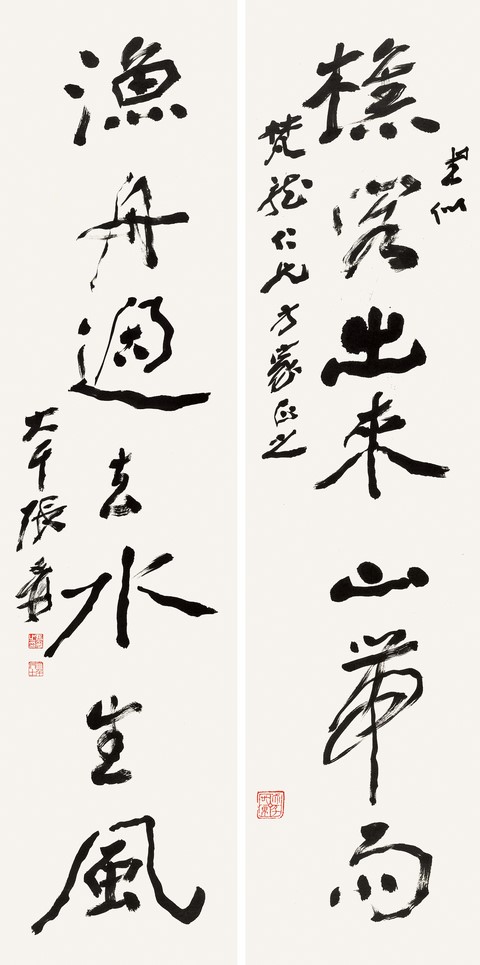 書似
樵客出來山帶雨
梵龍仁兄方家正之
漁舟過去水生風
大千張爰